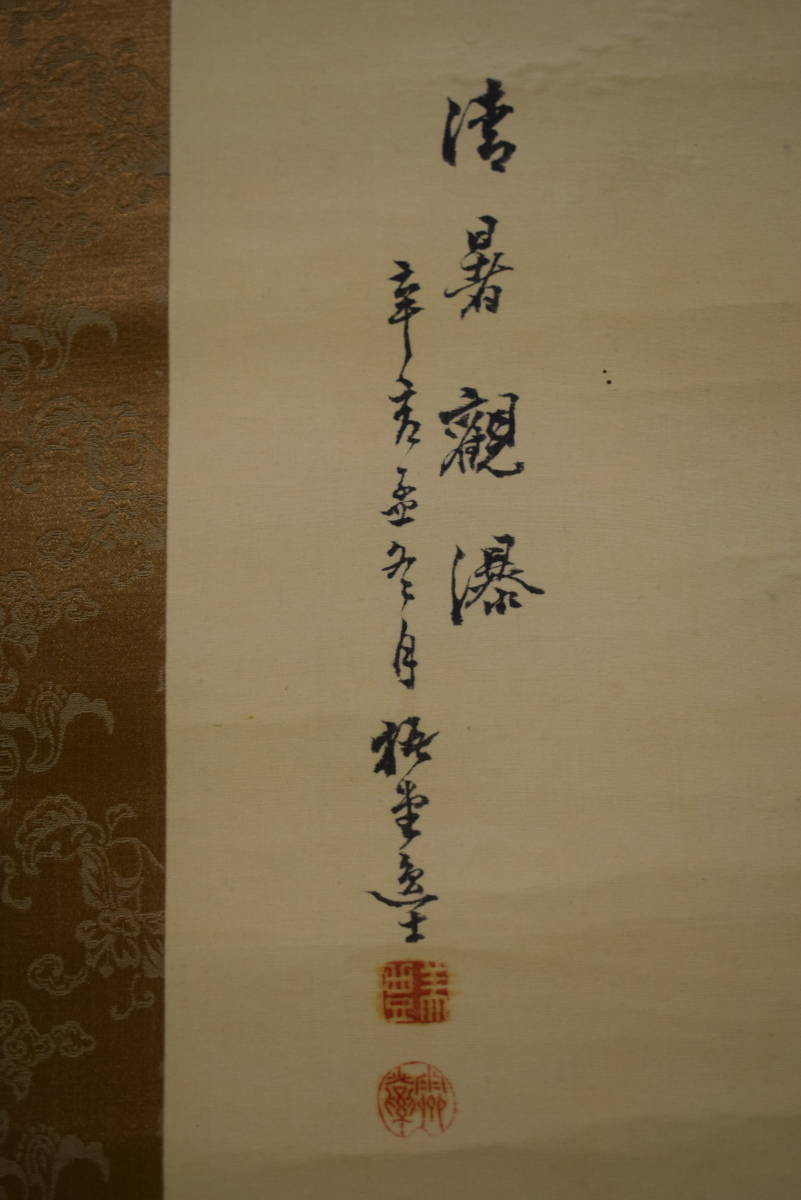 清暑觀瀑
辛亥孟冬月 梧堂逸士